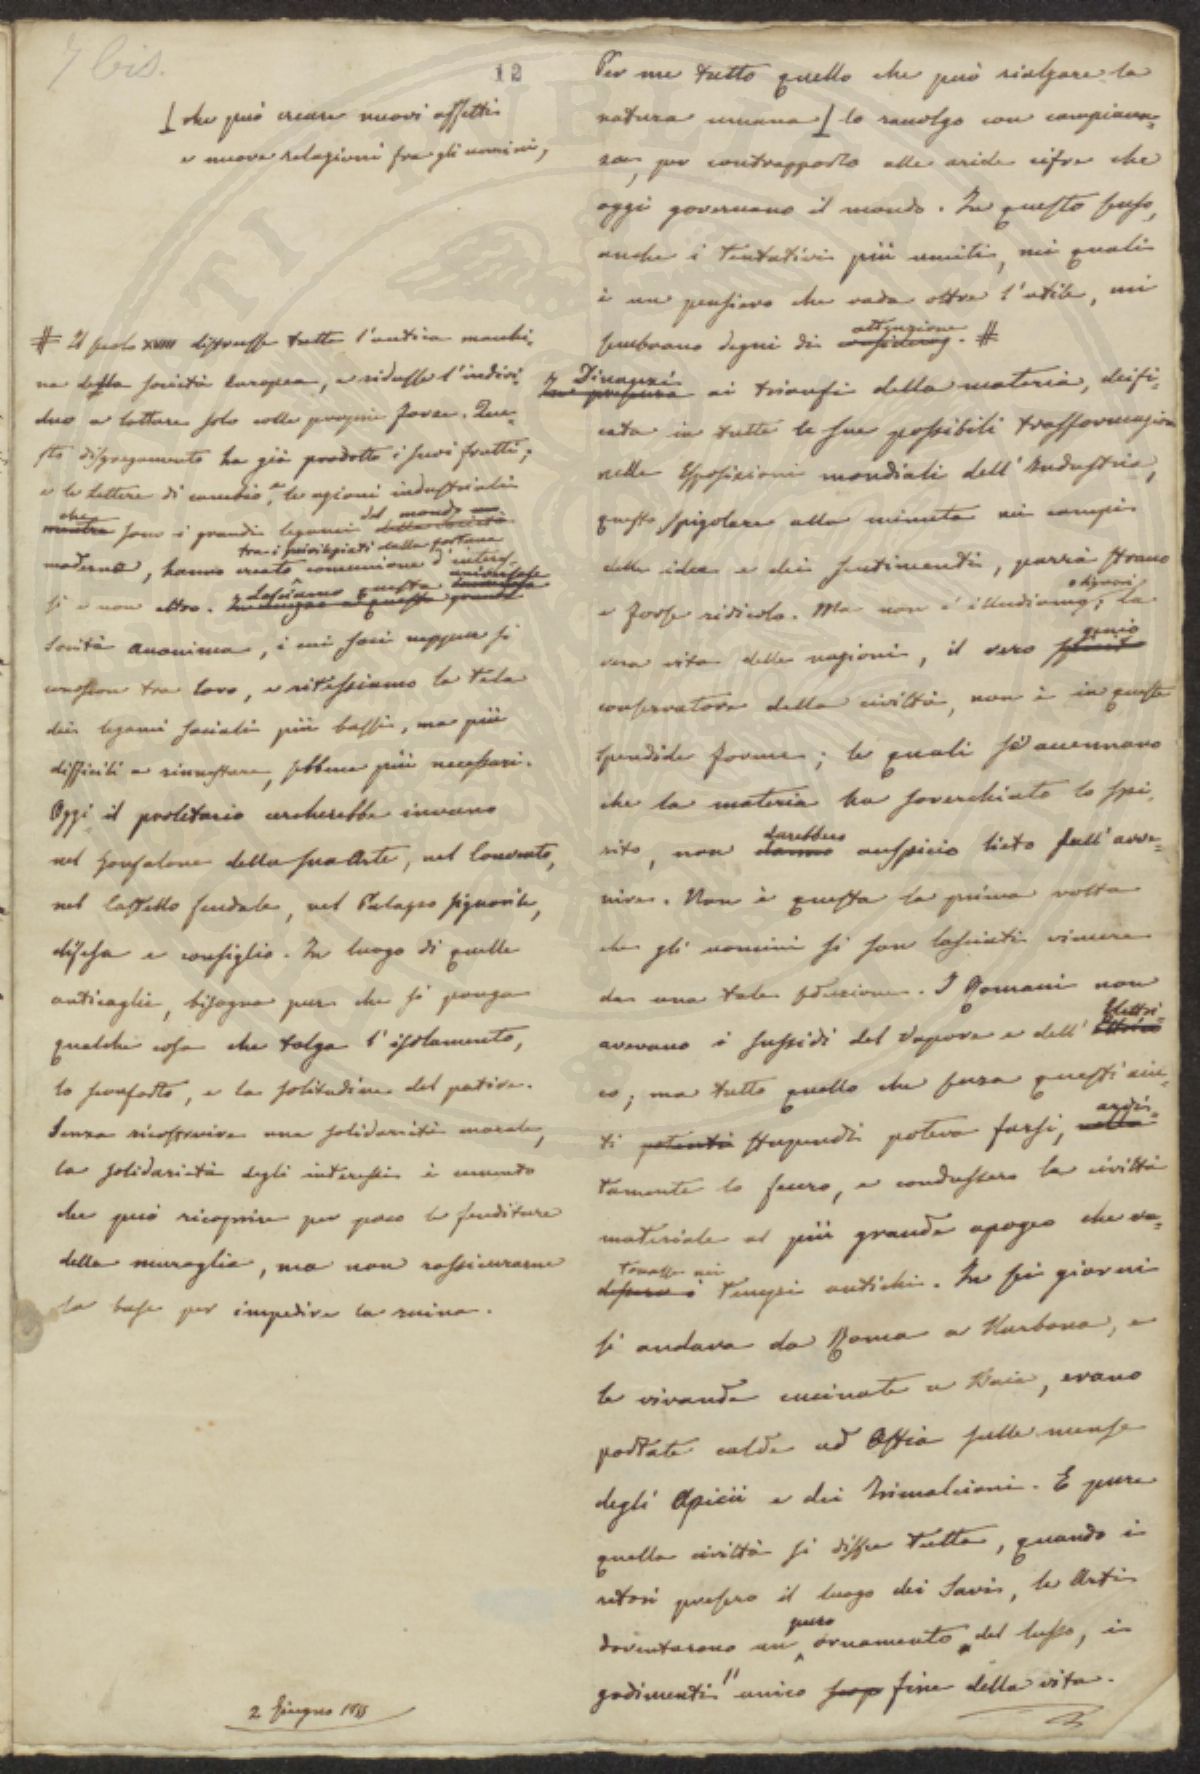 7 bis.
12
⊥ che può creare nuovi affetti
e nuove relazioni fra gli uomini,
# Il secolo XVIII distrusse tutta l'antica macchi-
na della società Europea, e ridusse l'indivi-
duo a lottare solo colle proprie forze. Que-
sto disgregamento ha già prodotto i suoi frutti;
e le lettere di cambio e le azioni industriali
che
mentre sono i grandi legami della società
del mondo
moderno, hanno creato comunione d'interes-
tra i privilegiati della fortuna
si e non altro. In mezzo a questa grande
Lasciamo questa
società anonima, i cui soci neppur si
conoscon tra loro, e ritessiamo la tela
dei legami sociali più bassi, ma più
difficili a rinnestare, sebbene più necessari.
Oggi il proletario cercherebbe invano
nel Gonfalone della sua Arte, nel Convento,
nel Castello feudale, nel Palazzo signorile,
difesa e consiglio. In luogo di quelle
anticaglie, bisogna pur che si ponga
qualche cosa che tolga l'isolamento,
lo sconforto, e la solitudine del patire.
Senza ricostruire una solidarietà morale,
la solidarietà degli interessi è cemento
che può ricoprire per poco le fenditure
della muraglia, ma non rassicurarne
la base per impedire la ruina.
2 Giugno 1855
Per me tutto quello che può rialzare la
natura umana ⊥ lo raccolgo con compiacen-
za, per contrapposto alle aride cifre che
oggi governano il mondo. In questo senso,
anche i tentativi più umili, nei quali
è un pensiero che vada oltre l'utile, mi
attenzione
sembrano degni di . #
Dinanzi
In presenza ai trionfi della materia, deifi-
cata in tutte le sue possibili trasformazioni
nelle Esposizioni mondiali dell'Industria,
questo spigolare alla minuta nei campi
delle idee e dei sentimenti, parrà strano
o signori
e forse ridicolo. Ma non c'illudiamo; la
genio
vera vita delle nazioni, il vero spirito
conservatore della civiltà, non è in queste
splendide forme; le quali se accennano
che la materia ha soverchiato lo spi-
darebbero
rito, non danno auspicio lieto sull'avve-
nire. Non è questa la prima volta
che gli uomini si son lasciati vincere
da una tale seduzione. I Romani non
Elettri-
avevano i sussidi del Vapore e dell'
co; ma tutto quello che senza questi aiu-
ardi-
ti potenti stupendi poteva farsi,
tamente lo fecero, e condussero la civiltà
materiale al più grande apogeo che va-
toccasse nei
tempi antichi. In sei giorni
si andava da Roma a Narbona, e
le vivande cucinate a Baia, erano
portate calde ad Ostia sulle mense
degli Apicii e dei Trimalcioni. E pure
quella civiltà si disfece tutta, quando i
retori presero il luogo dei Savi, le Arti
puro
doventarono un ornamento del lusso, i
godimenti unico scop fine della vita.